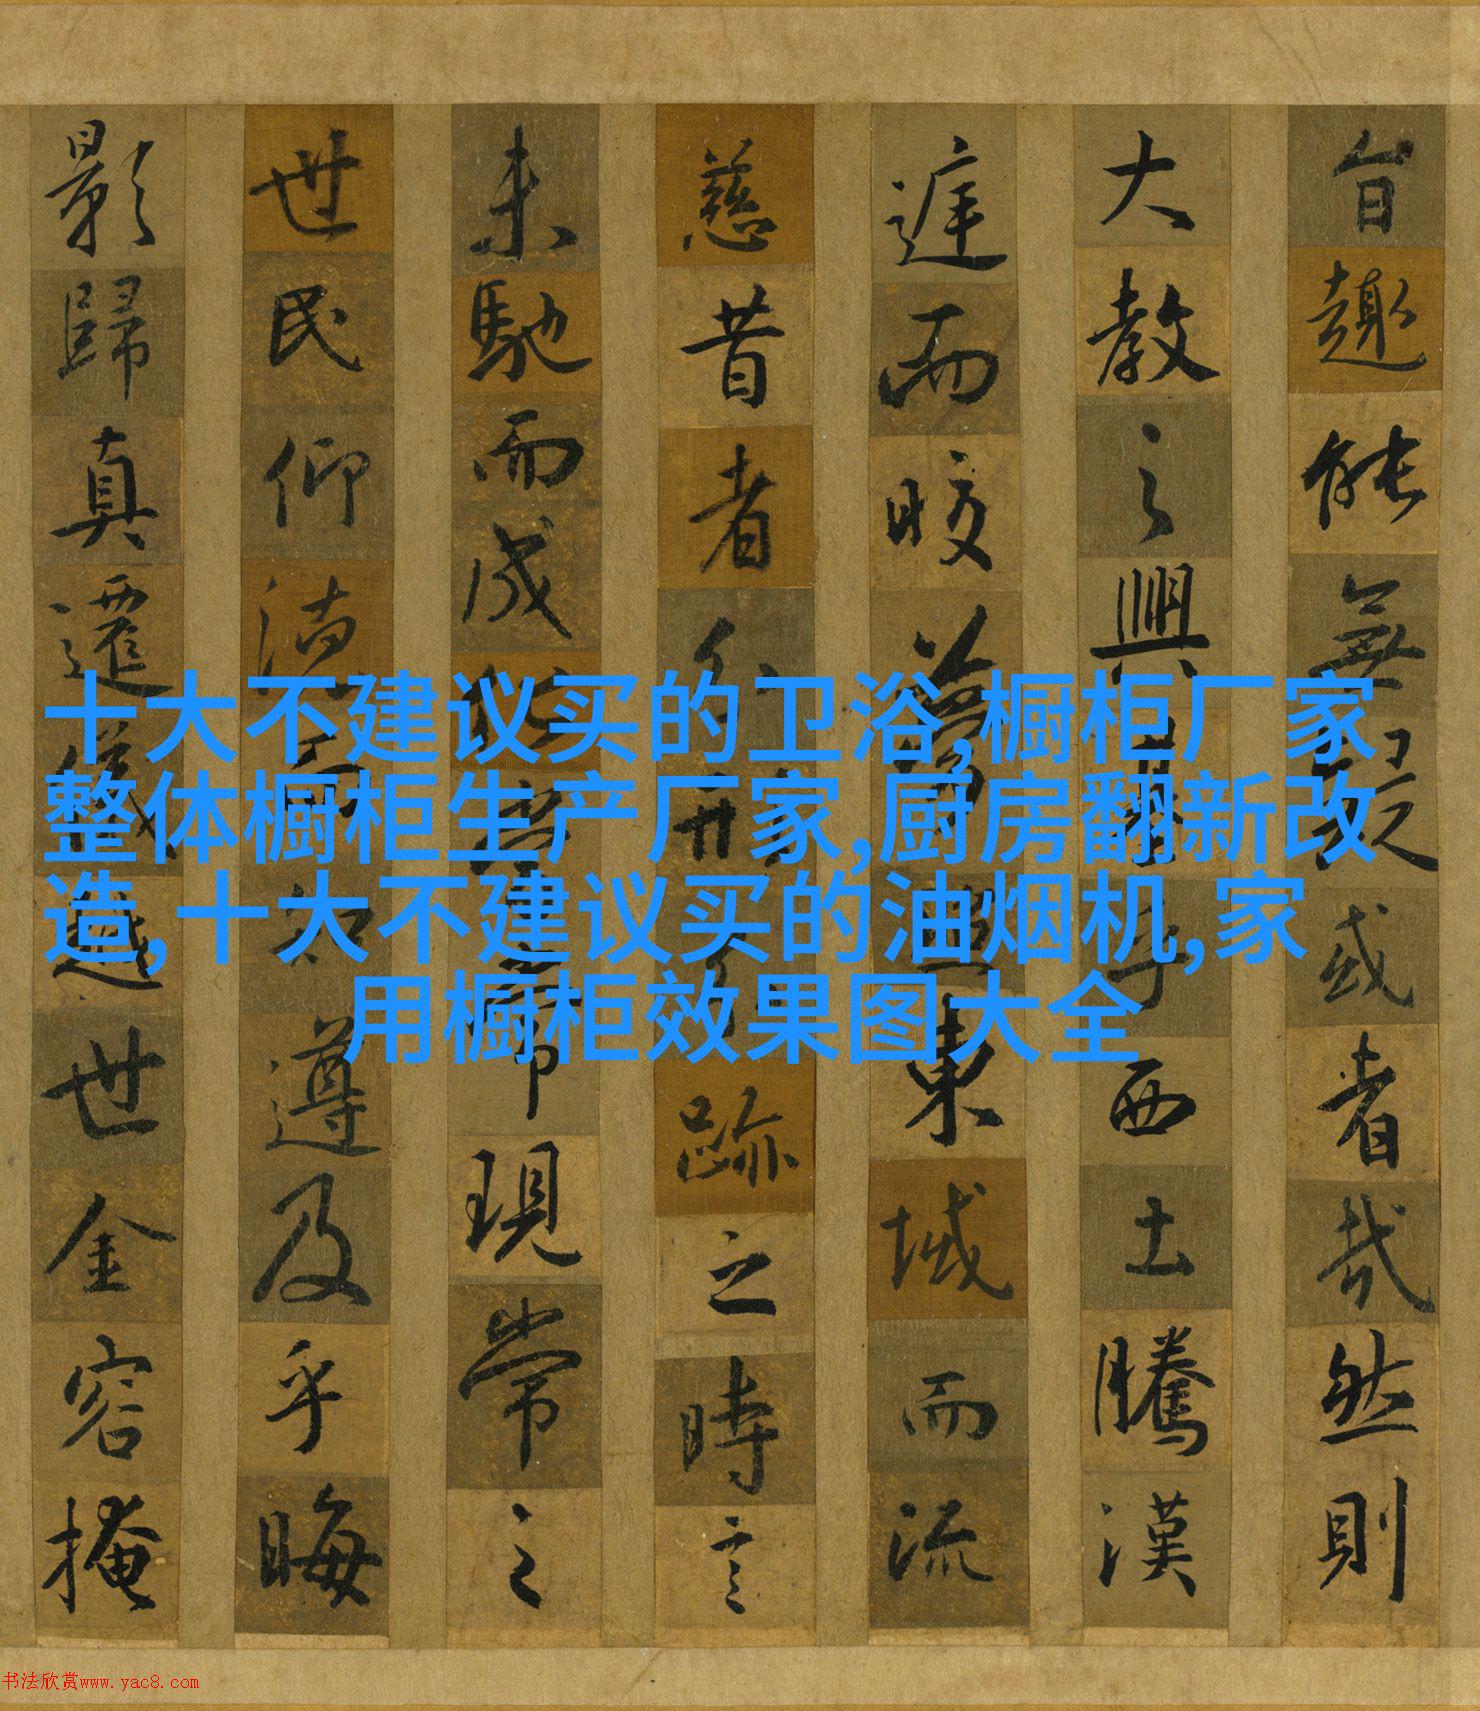 旨趣能無疑或者哉然則
大教之興基乎西土騰漢
庭而皎夢照東域而流
慈昔者分形分跡之時言
未馳而成化當常現常之
世民仰德而知遵及乎晦
影歸真遷儀越世金容掩
十大不建议买的卫浴,橱柜厂家
整体橱柜生产厂家,厨房翻新改
造,十大不建议买的油烟机,家
用橱柜效果图大全
书法欣赏www.yac8.com